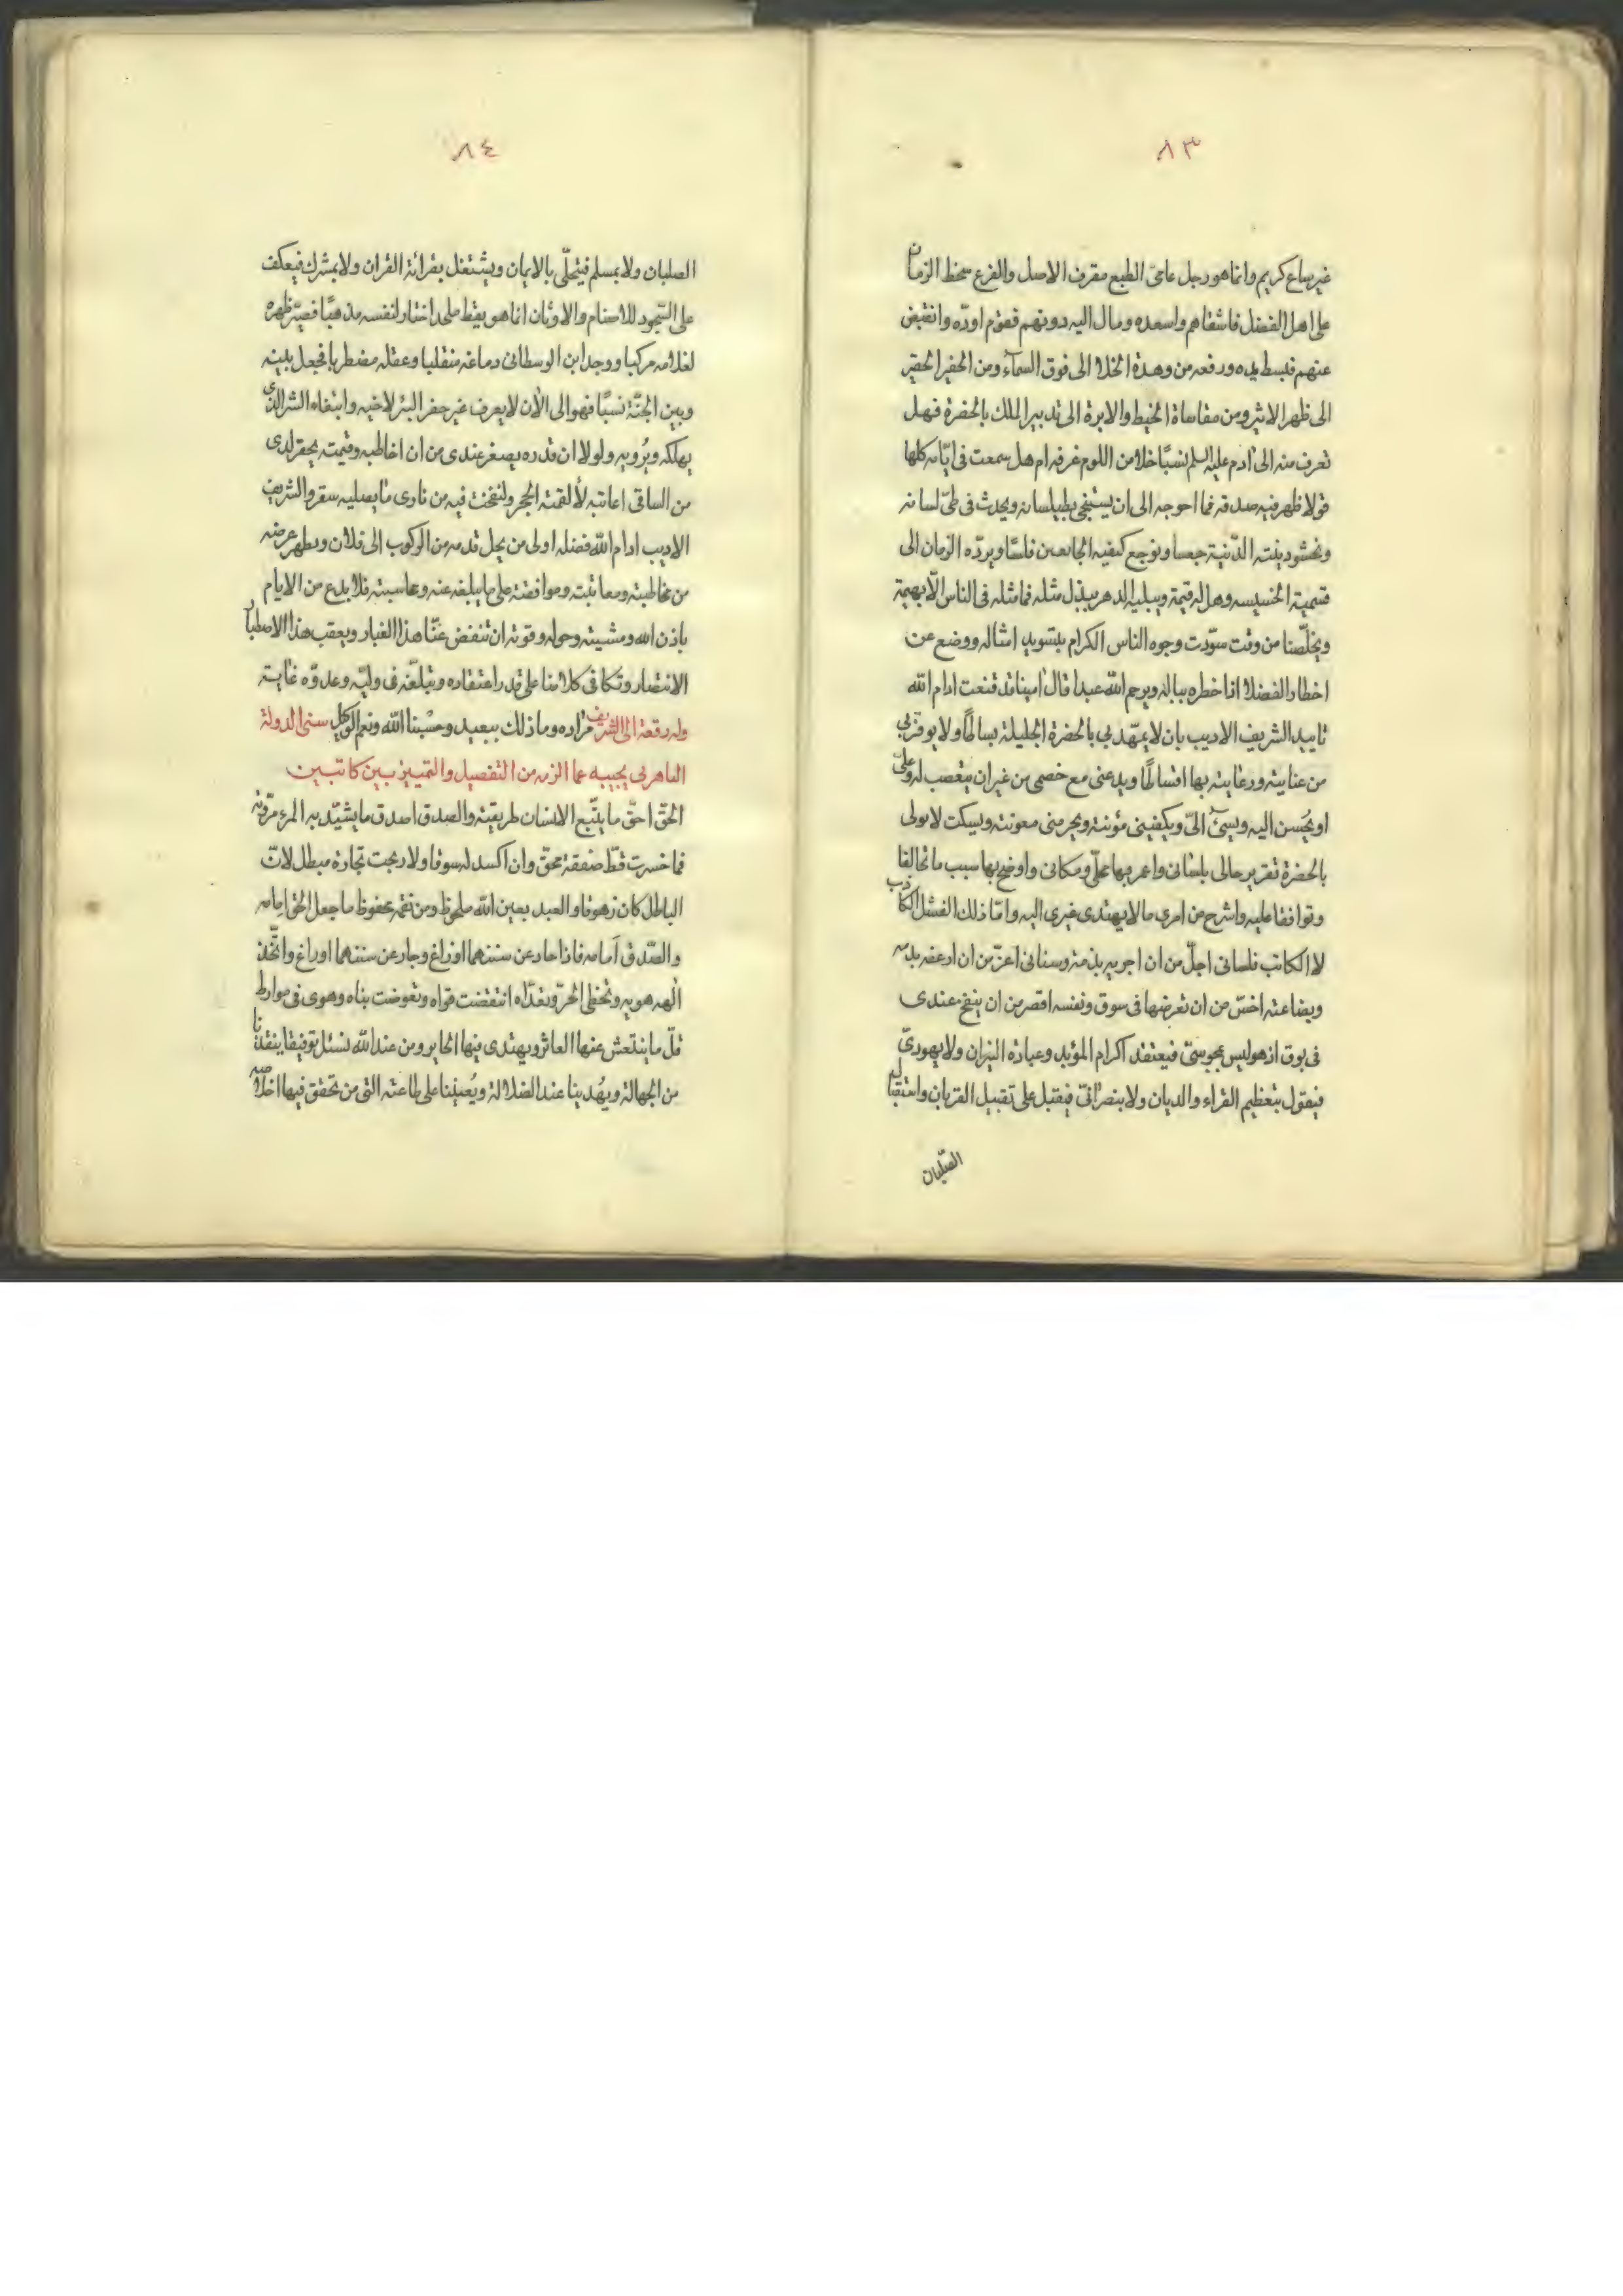 ٨٣
غير ساع كريم وانما هو رجل عامى الطبع مقرف الاصل والفرع سخط الزمان
على اهل الفضل فاشقاهم واسعده ومال اليه دونهم فقوم اوده وانقبض
عنهم فبسط يده ورفعه من وهدة الخلا الى فوق السماء ومن الحفير الحقير
الى ظهر الاثير ومن مقاساة الخيط والابرة الى تدبير الملك بالحضرة فهل
تعرف منه الى آدم عليه السلم نسبًا خلا من اللوم عرفه ام هل سمعت فى ايّامه كلها
قولا ظهر فيه صدقه فما احوجه الى ان يستنجى بطيلسانه ويحدث فى طىّ لسانه
الدّنية جعسا ونوجع كفيه الجامعين فلسًا ويردّه الزمان الى
قسمية الخسيسه وهل له قيمة ويبليه الدهر ببذل مثله فما مثله فى الناس الّا بهيمة
ويخلّصنا من وقت سوّدت وجوه الناس الكرام بتسويد امثاله ووضع عن
اخطار الفضلا اذا خطره بباله ويرحم الله عبدا قال آمينا قد قنعت ادام الله
تاييد الشريف الاديب بان لا يمهّد بى بالحضرة الجليلة بساطًا ولا يوفر بى
من عنايته ورعايته بها اقساطًا ويدعنى مع خصمى من غير ان يتعصب له وعلىّ
او يُحسن اليه ويسئ الىّ ويكفينى مؤنته ويحرمنى معونته ويسكت لاتولى
بالحضرة تقرير حالى بلسانى واعمر بها محلّى ومكانى واوضح بها سبب ما تخالفا
وتوافقا عليه واشرح من امرى ما لا يهتدى غيرى اليه وامّا ذلك الفشل الكاذب
لا الكاتب فلسانى اجلّ من ان اجريه بذمّه وسنانى اعزّ من ان ارعفه بدمه
وبضاعته اخسّ من ان تعرضها فى سوق ونفسه اقصر من ان ينفخ عندى
فى بوق اذ هو ليس بمجوسىّ فيعتقد اكرام المؤبد وعبادة النيران ولا يهودىّ
فيقول بتعظيم القراء والديان ولا بنصرانىّ فيقبل على تقبيل القربان واستقبال
الصّلبان
٨٤
الصلبان ولا بمسلم فيتحلّى بالايمان ويشتغل بقرائة القران ولا بمشرك فيعكف
على السّجود للاصنام والاوثان انما هو يقظ ملحد اختار لنفسه مذهبًا فصيّر ظهره
لغلامه مركبا ووجد ابن الوسطانى دماغه منقلبا وعقله مضطربا فجعل بينه
وبين الجنّة نسبًا فهو الى الآن لا يعرف غير حفر البئر لاخيه وابتغاء الشر الذى
يهلكه ويُرويه ولولا ان قدره يصغر عندى من ان اخاطبه وقيمته يحقر لدى
من الساقى اعاتبه لألقمته الحجر ولنفخت فيه من نارى ما يصليه سقر والشريف
الاديب ادام الله فضله اولى من يجل قدمه من الركوب الى فلان ويطهر عرضه
من مخاطبته ومعاتبته وموافقته على ما يبلغه عنه ومحاسبته فلا بدع من الايام
باذن الله ومشيته وحوله وقوته ان تنفض عنّا هذا الغبار ويعقب هذا الاصطبار
الانتصار وتكافى كلا منا على قدر اعتقاده وتبلّغه فى وليّه وعدوّه غاية
مراده وما ذلك ببعيد وحسْبنا الله ونعم الوكيل وله رقعة الى الشريف سنى الدولة
يجيبه عما الزمه من التفصيل والتمييز بين كاتبين
الحق احقّ ما يتّبع الانسان طريقته والصدق اصدق ما يشيّد به المرء مرّوته
فما خسرت قطّ صفقة محقّ وان اكسد له سوقا ولا ربحت تجارة مبطل لانّ
الباطل كان زهوقا والعبد بعين الله ملحوظ ومن نقمه محفوظ ما جعل الحق امامه
والصّدق أمامه فاذا حاد عن سننهما او زاغ وجار عن سننهما او راغ واتّخذ
الٰهه هويه وتخطى الحرّ وتعدّاه انتقضت قواه وتقوضت بناه وهوى فى موارط
قلّ ما ينتعش عنها العاثر ويهتدى فيها الحاير ومن عند الله نسئل توفيقا ينقذنا
من الجهالة ويهُدينا عند الضلالة ويُعيننا على طاعته التى من تحقق فيها اخلاصه